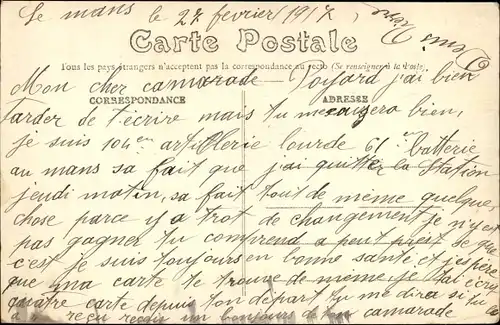 Le mans le 27 fevrier 1917,
Carte Postale
Tous les pays étrangers n'acceptent pas la correspondance au recto (Se renseigner à la Poste).
Mon cher camarade Poisard j'ai bien
CORRESPONDANCE ADRESSE
tarder de t'écrire mais tu mexcusera bien,
je suis 104 em artillerie lourde 61 em batterie
au mans sa fait que j'ai quitter la Station
jeudi matin, sa fait tout de même quelque,
chose parce y'a trot de changement je n'y est
pas gagner tu comprend a peut prest se que
c'est je suis toujours en bonne santé et j'espère
que ma carte te trouve de même, je t'ai écri
quatre carte depuis ton départ tu me dira si tu
a reçu un bonjours de ton camarade